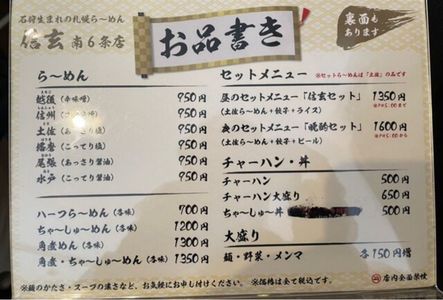 石狩生まれの札幌ら〜めん
信玄 南6条店
お品書き
裏面も
あります
ら〜めん
越後(辛味噌) 950円
信州 950円
土佐(あっさり塩) 950円
播磨(こってり塩) 950円
尾張(あっさり醤油) 950円
水戸(こってり醤油) 950円
ハーフら〜めん(各味) 700円
ちゃ〜しゅ〜めん(各味) 1200円
角煮めん(各味) 1300円
角煮・ちゃ〜しゅ〜めん(各味) 1350円
セットメニュー ※セットら〜めんは「土佐」のみです
昼のセットメニュー「信玄セット」 1350円
(土佐ら〜めん+餃子+ライス) ※PM5:00まで
夜のセットメニュー「晩酌セット」 1600円
(土佐ら〜めん+餃子+ビール) ※PM5:00から
チャーハン・丼
チャーハン 500円
チャーハン大盛り 650円
ちゃ〜しゅ〜丼 500円
大盛り
麺・野菜・メンマ 各150円増
※麺のかたさ・スープの濃さなど、お気軽にお申し付けください。 ※価格は全て税込です。
店内全面禁煙